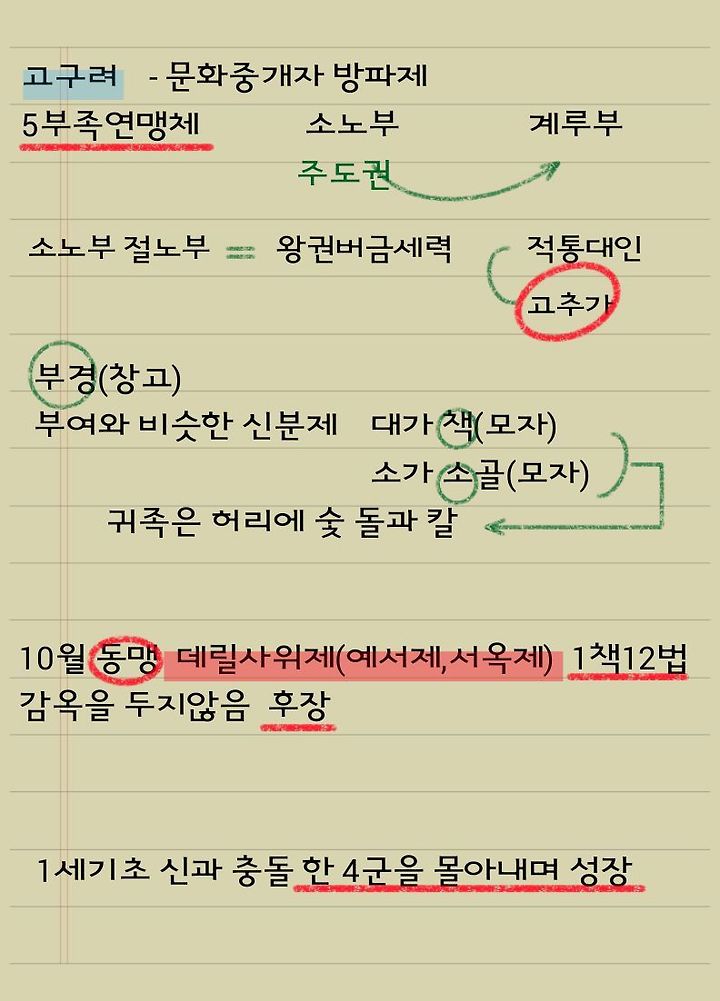 고구려 - 문화중개자 방파제
5부족연맹체 소노부 계루부
주도권
소노부 절노부 = 왕권버금세력 적통대인
고추가
부경(창고)
부여와 비슷한 신분제 대가 책(모자)
소가 소골(모자)
귀족은 허리에 숯 돌과 칼
10월 동맹 데릴사위제(예서제,서옥제) 1책12법
감옥을 두지않음 후장
1세기초 신과 충돌 한 4군을 몰아내며 성장